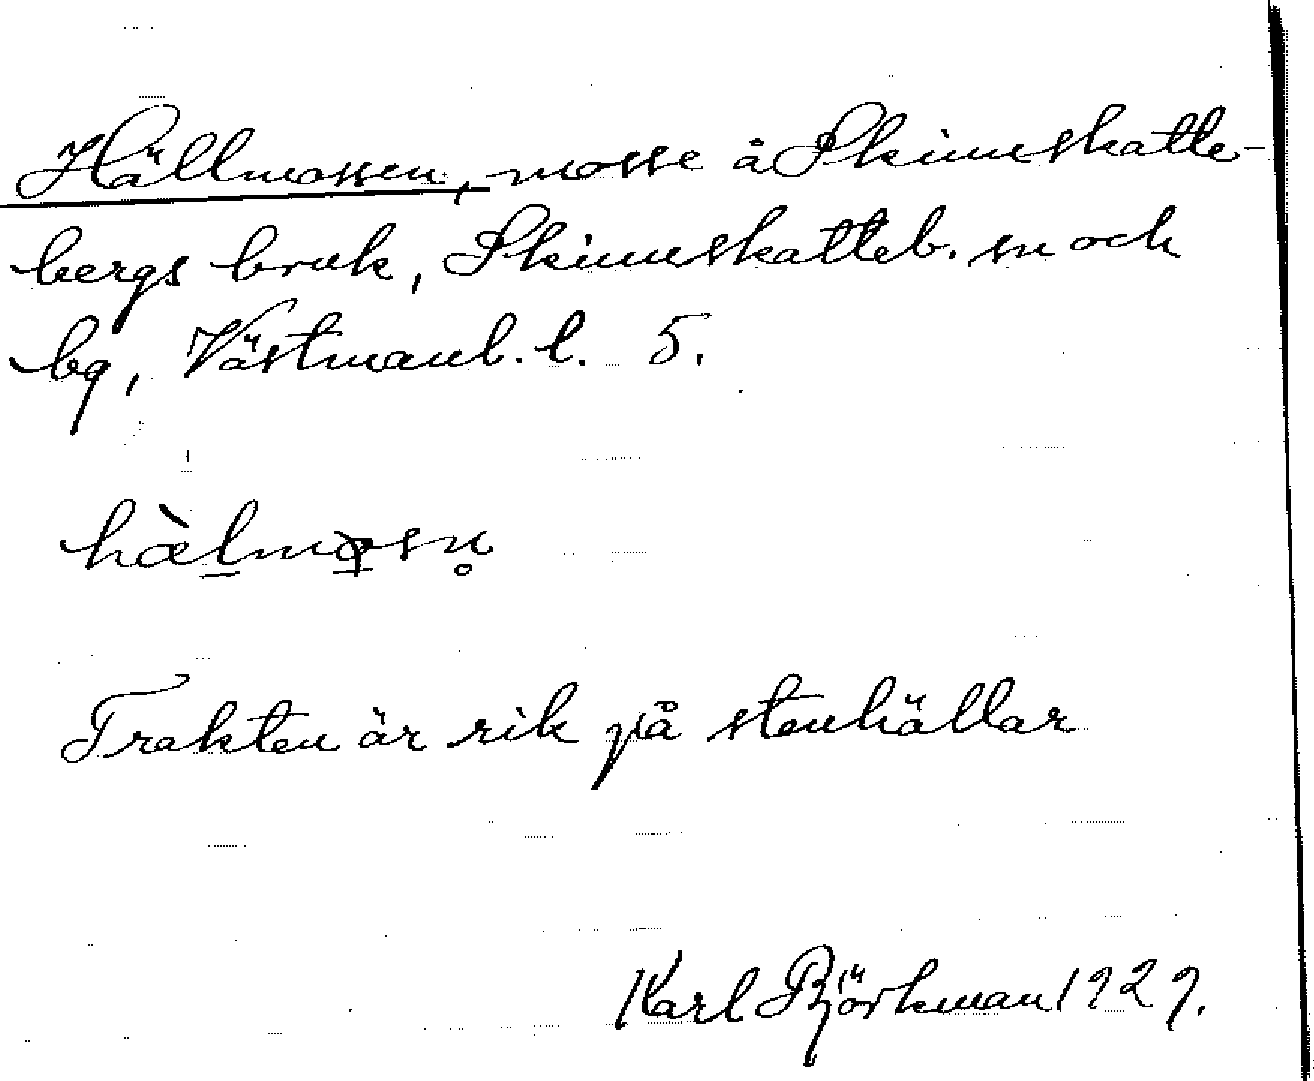 Hällmossen, mosse å Skinnskatte-
bergs bruk, Skinnskatteb. sn och
bg, Västmanl. l. 5.
hàlmosn̥
Trakten är rik på stenhällar
Karl Björkman 1929.